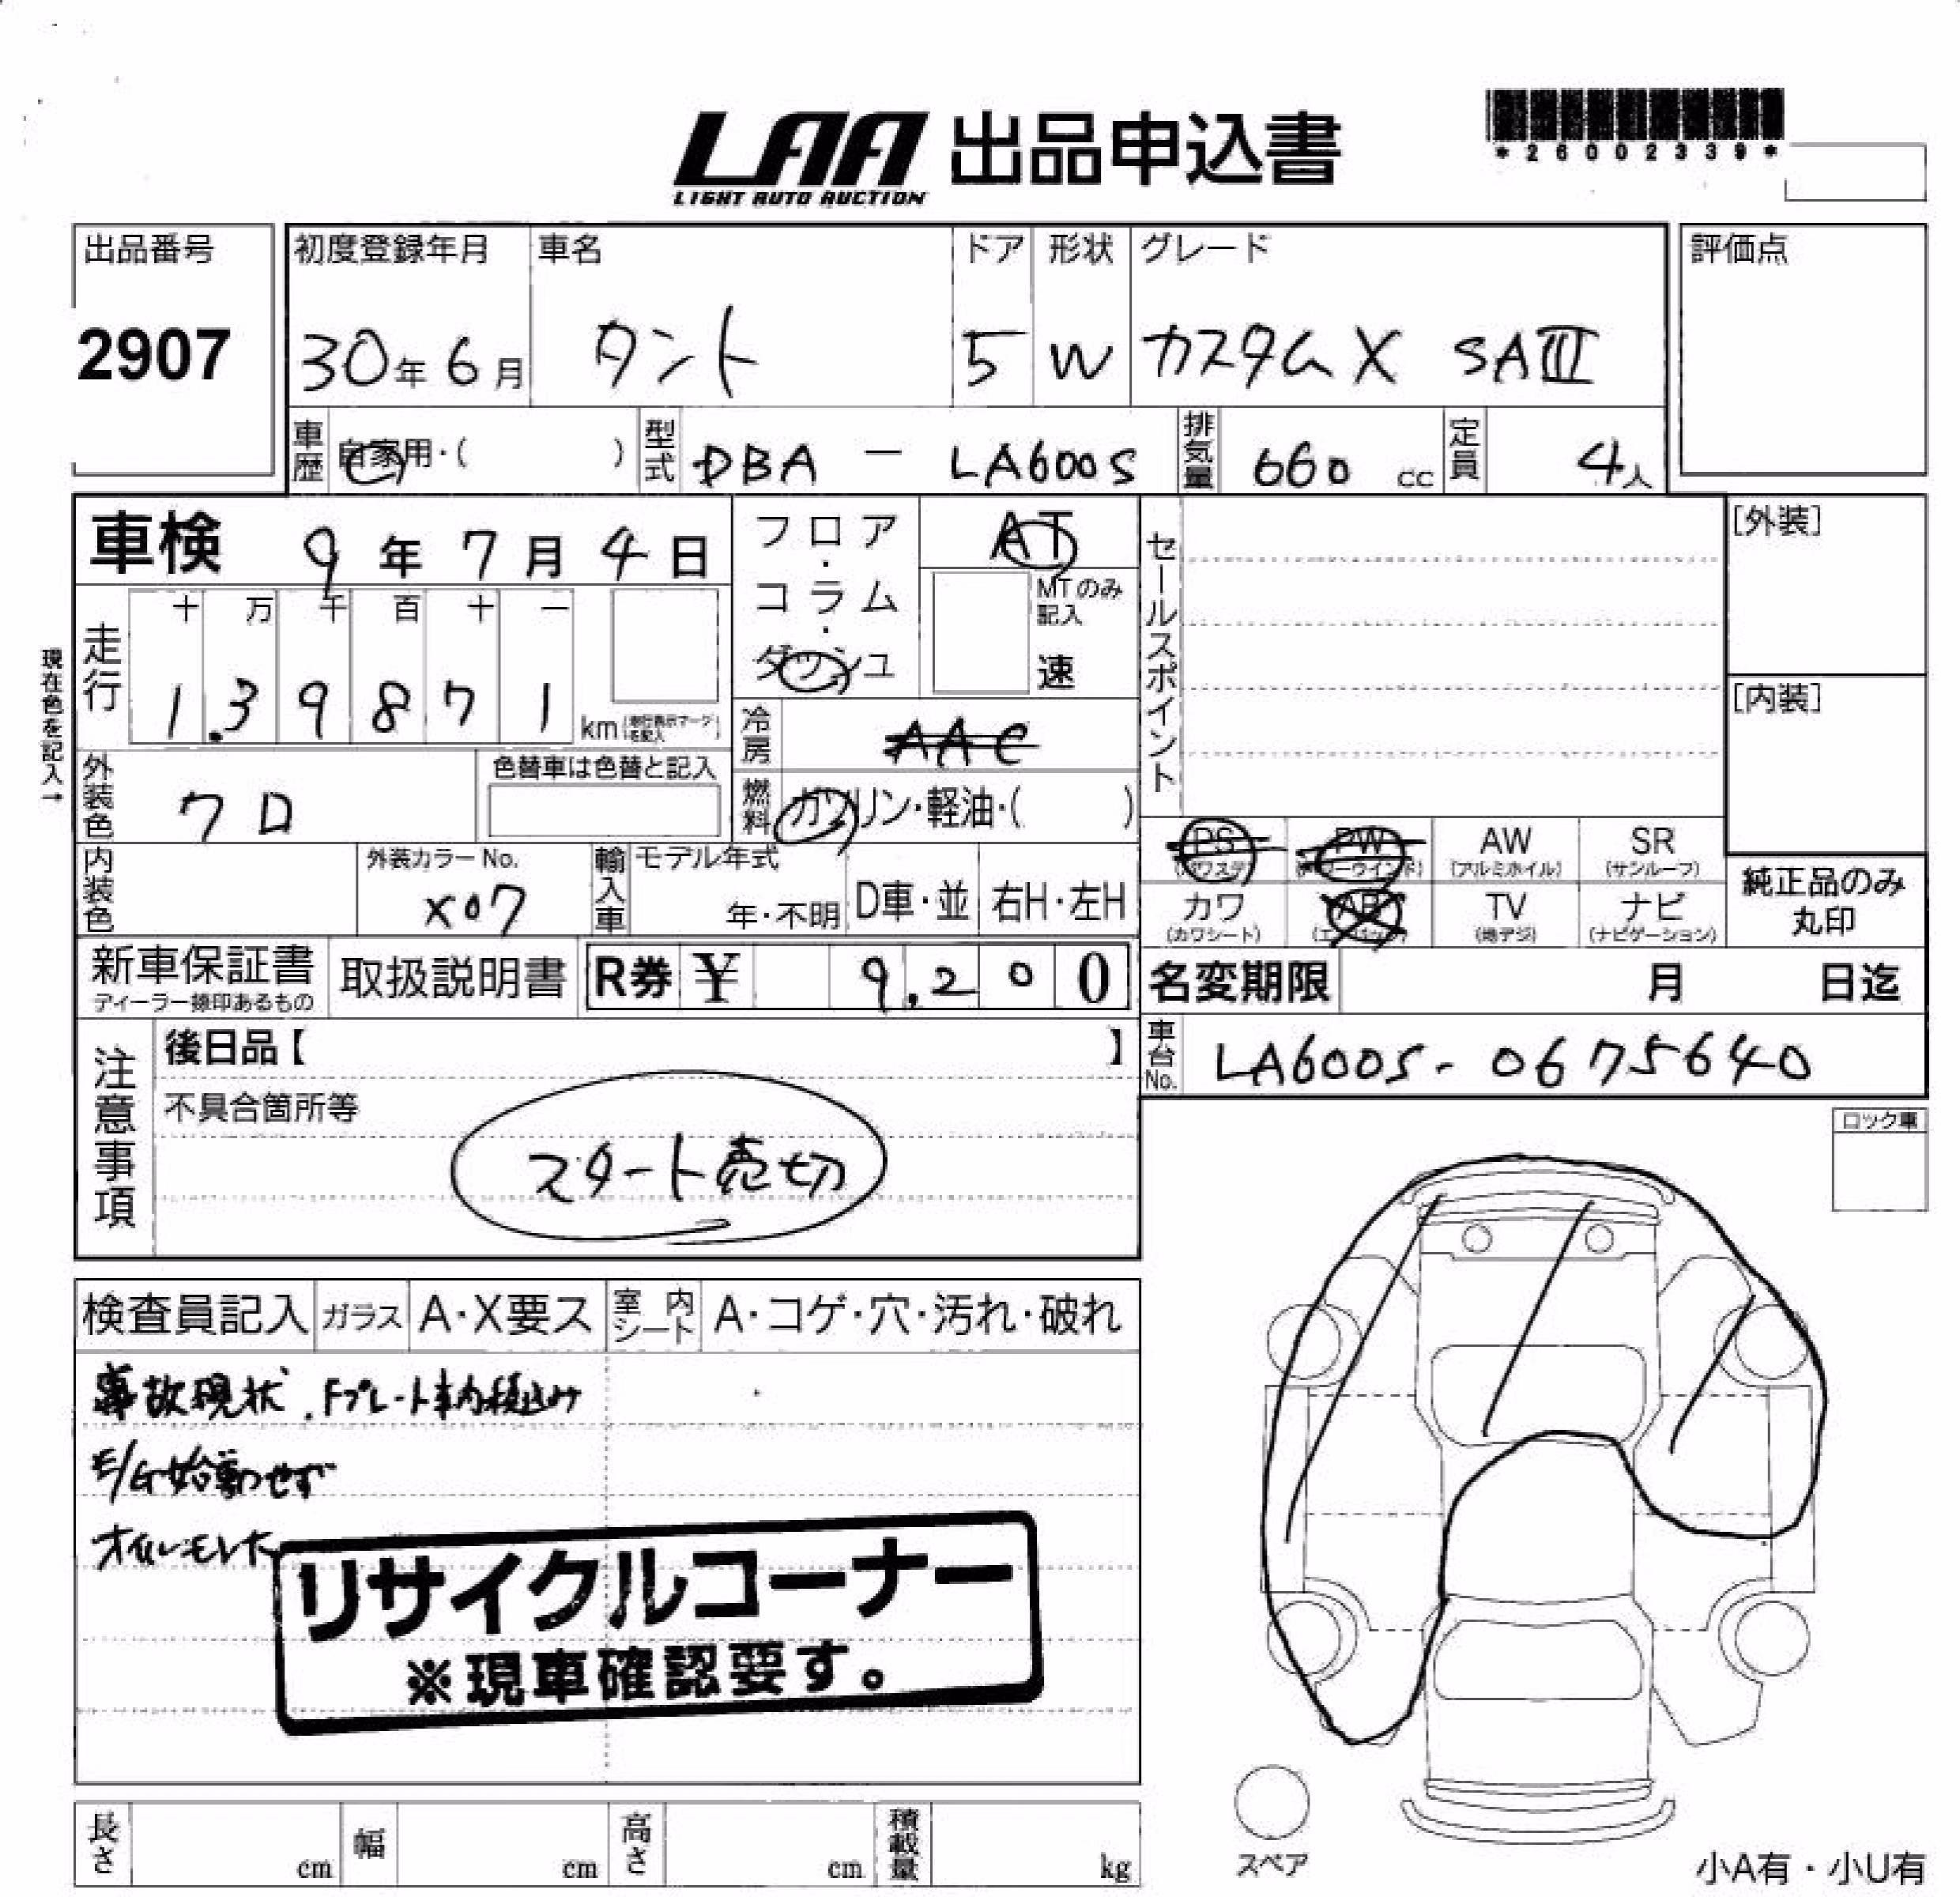 LAA 出品申込書
LIGHT AUTO AUCTION
*26002339*
出品番号
2907
初度登録年月
30年6月
車名
タント
ドア
5
形状
W
グレード
カスタムX SAⅢ
評価点
車歴
自家用・( )
型式
DBA - LA600S
排気量
660 cc
定員
4人
車検 9年7月4日
フロア・コラム・ダッシュ
AT
MTのみ記入
速
セールスポイント
[外装]
[内装]
現在色を記入→
走行
十 万 千 百 十 一
1.39871 km
冷房
AAC
燃料
ガソリン・軽油・( )
外装色
クロ
色替車は色替と記入
内装色
外装カラーNo.
X07
輸入車
モデル年式
年・不明
D車・並
右H・左H
PS
PW
AW
(アルミホイル)
SR
(サンルーフ)
カワ
(カワシート)
AB
TV
(地デジ)
ナビ
(ナビゲーション)
純正品のみ
丸印
新車保証書
ディーラー捺印あるもの
取扱説明書
R券 ¥ 9,200
名変期限 月 日迄
注意事項
後日品【 】
不具合箇所等
スタート売切
車台No.
LA600S-0675640
ロック車
検査員記入
ガラス
A・X要ス
室内シート
A・コゲ・穴・汚れ・破れ
事故現状.Fプレート車内積込み
E/G始動せず
オイルモレ大
リサイクルコーナー
※現車確認要す。
長さ cm
幅 cm
高さ cm
積載量 kg
スペア
小A有・小U有